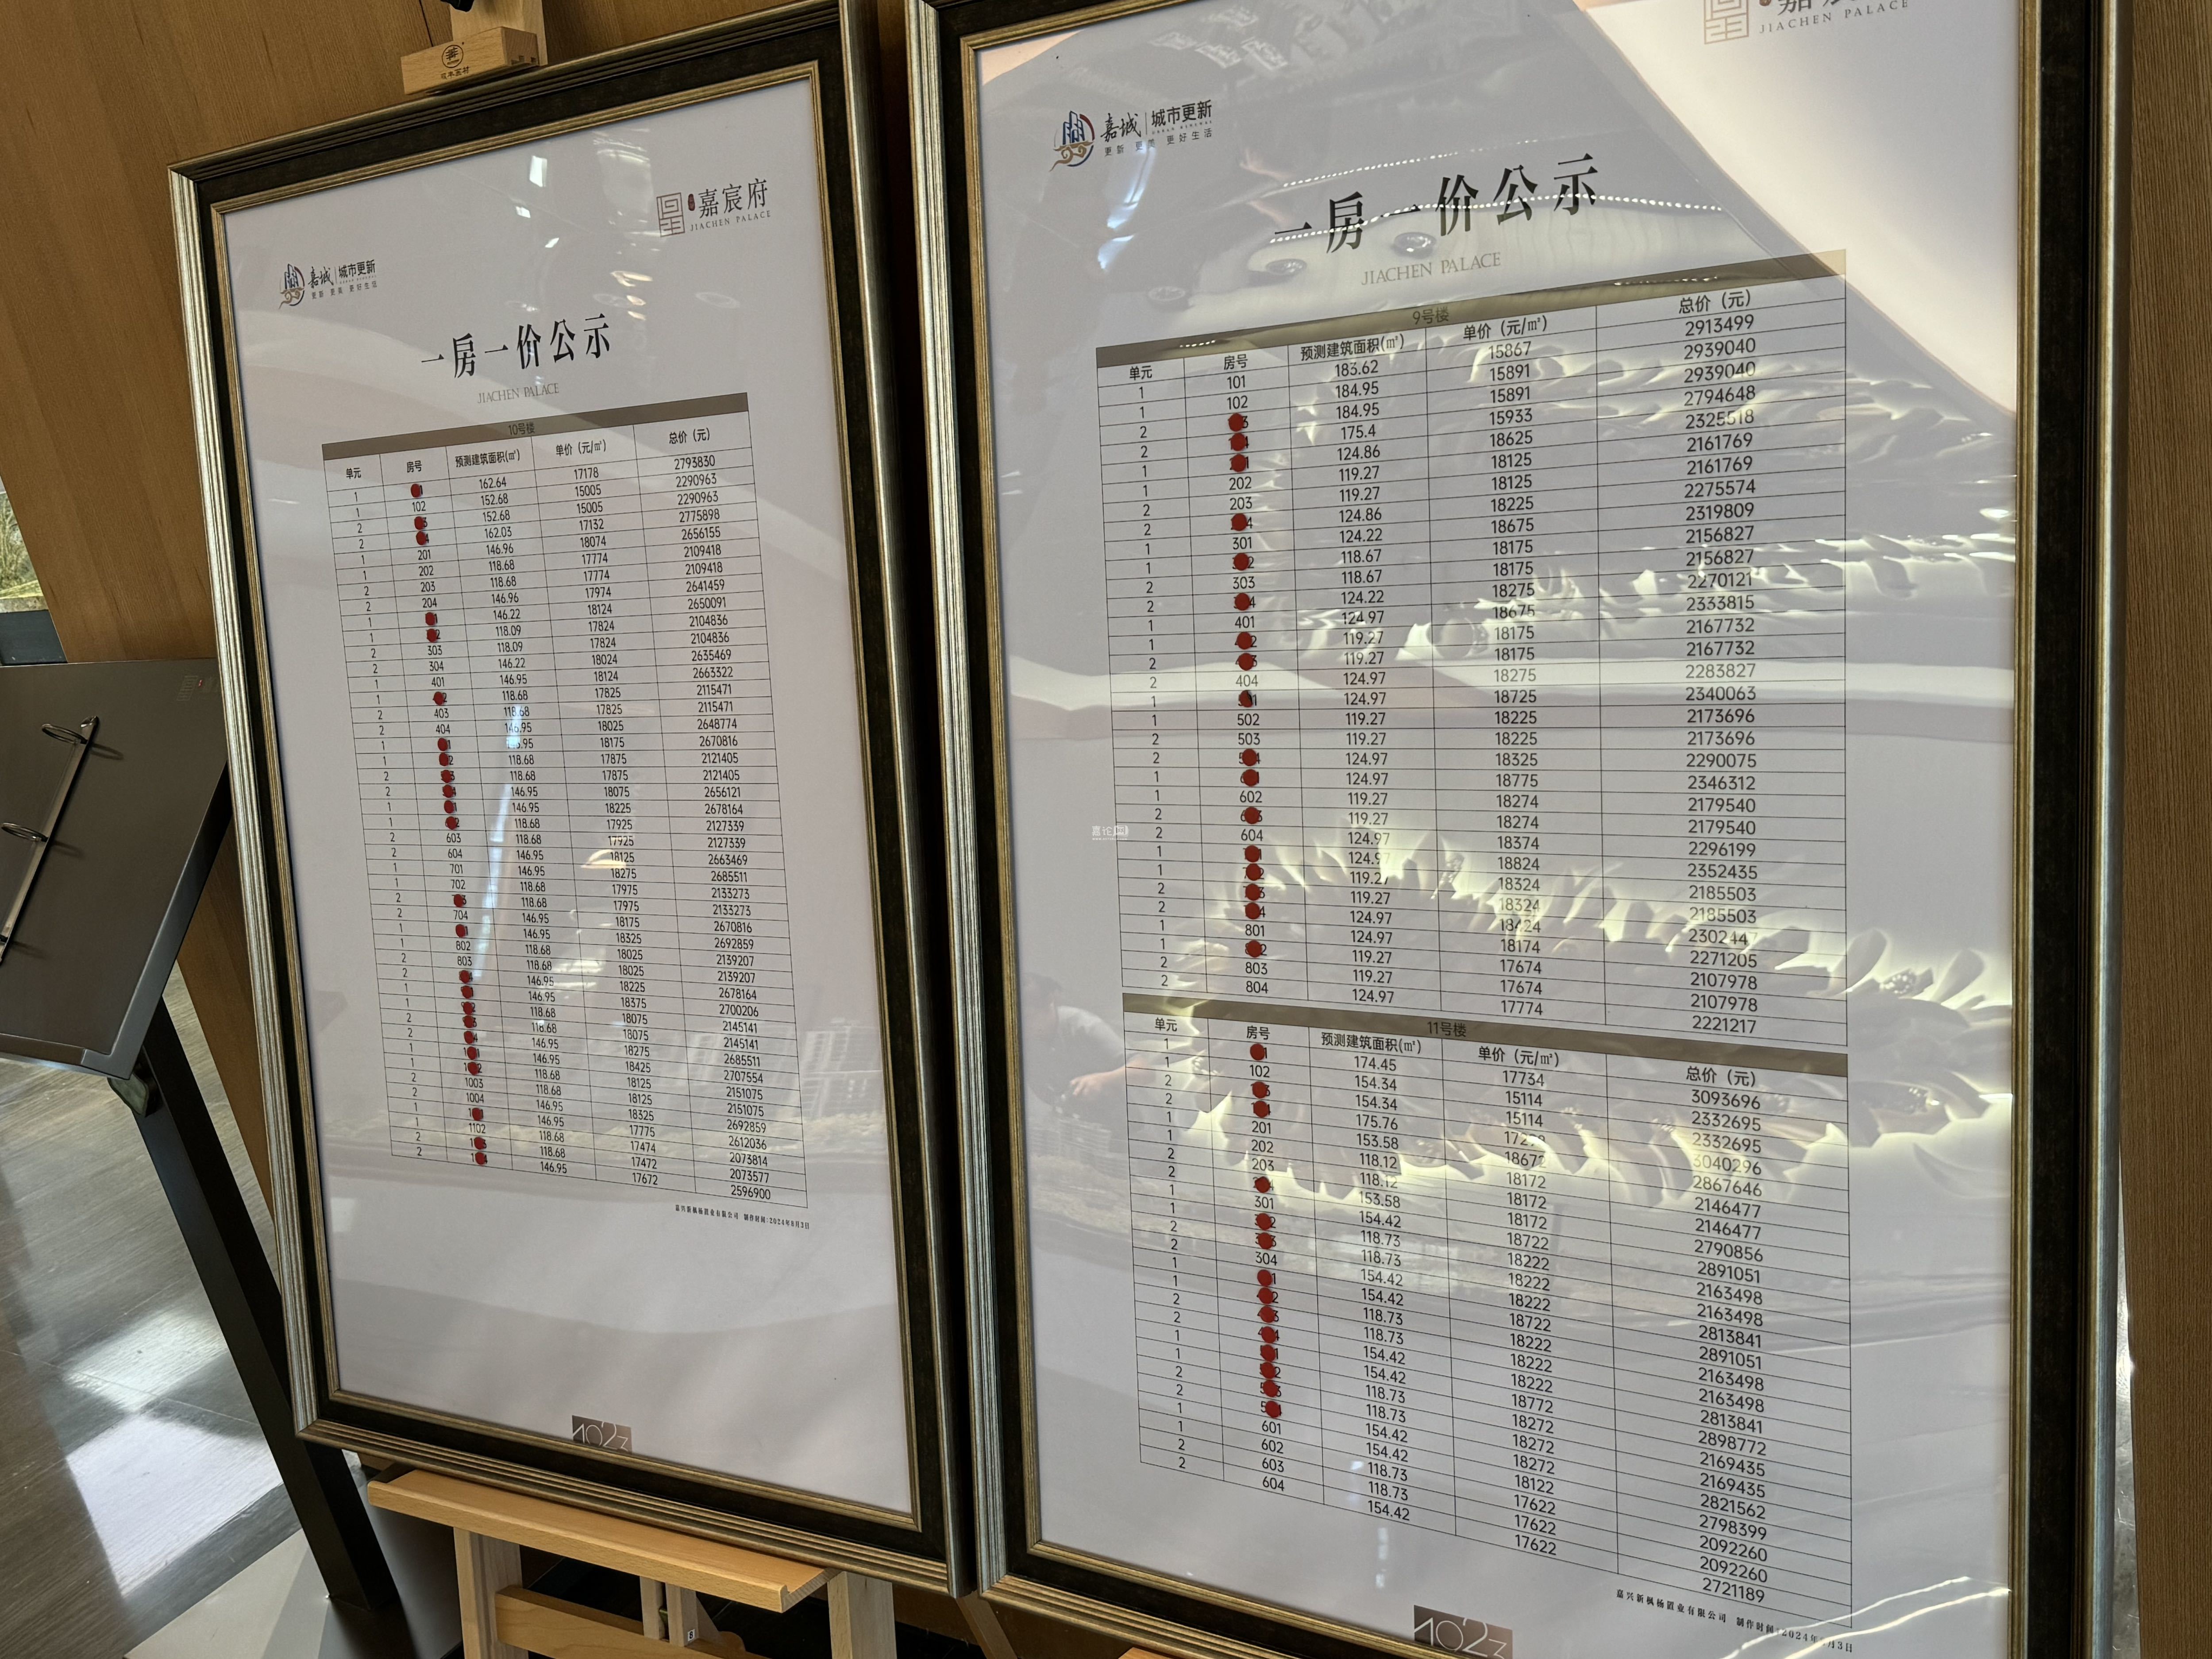 嘉宸府
JIACHEN PALACE
嘉城 城市更新
更新 更美 更好生活
一房一价公示
JIACHEN PALACE
10号楼
单元 房号 预测建筑面积(㎡) 单价（元/㎡） 总价（元）
1 162.64 17178 2793830
1 102 152.68 15005 2290963
2 152.68 15005 2290963
2 162.03 17132 2775898
1 201 146.96 18074 2656155
1 202 118.68 17774 2109418
2 203 118.68 17774 2109418
2 204 146.96 17974 2641459
1 146.22 18124 2650091
1 118.09 17824 2104836
2 303 118.09 17824 2104836
2 304 146.22 18024 2635469
1 401 146.95 18124 2663322
1 118.68 17825 2115471
2 403 118.68 17825 2115471
2 404 146.95 18025 2648774
1 146.95 18175 2670816
1 118.68 17875 2121405
2 118.68 17875 2121405
2 146.95 18075 2656121
1 146.95 18225 2678164
1 118.68 17925 2127339
2 603 118.68 17925 2127339
2 604 146.95 18125 2663469
1 701 146.95 18275 2685511
1 702 118.68 17975 2133273
2 118.68 17975 2133273
2 704 146.95 18175 2670816
1 146.95 18325 2692859
1 802 118.68 18025 2139207
2 803 118.68 18025 2139207
2 146.95 18225 2678164
1 146.95 18375 2700206
1 118.68 18075 2145141
2 118.68 18075 2145141
2 146.95 18275 2685511
1 146.95 18425 2707554
1 118.68 18125 2151075
2 1003 118.68 18125 2151075
2 1004 146.95 18325 2692859
1 146.95 17775 2612036
1 1102 118.68 17474 2073814
2 118.68 17472 2073577
2 146.95 17672 2596900
嘉兴新枫杨置业有限公司 制作时间:2024年8月3日
1023
JIACHEN PALACE
嘉城 城市更新
更新 更美 更好生活
一房一价公示
JIACHEN PALACE
9号楼
单元 房号 预测建筑面积(㎡) 单价（元/㎡） 总价（元）
1 101 183.62 15867 2913499
1 102 184.95 15891 2939040
2 184.95 15891 2939040
2 175.4 15933 2794648
1 124.86 18625 2325518
1 202 119.27 18125 2161769
2 203 119.27 18125 2161769
2 124.86 18225 2275574
1 301 124.22 18675 2319809
1 118.67 18175 2156827
2 303 118.67 18175 2156827
2 124.22 18275 2270121
1 401 124.97 18675 2333815
1 119.27 18175 2167732
2 119.27 18175 2167732
2 404 124.97 18275 2283827
1 124.97 18725 2340063
1 502 119.27 18225 2173696
2 503 119.27 18225 2173696
2 124.97 18325 2290075
1 124.97 18775 2346312
1 602 119.27 18274 2179540
2 119.27 18274 2179540
2 604 124.97 18374 2296199
1 124.97 18824 2352435
1 119.27 18324 2185503
2 119.27 18324 2185503
2 124.97 18424 2302447
1 801 124.97 18174 2271205
1 119.27 17674 2107978
2 803 119.27 17674 2107978
2 804 124.97 17774 2221217
11号楼
单元 房号 预测建筑面积(㎡) 单价（元/㎡） 总价（元）
1 174.45 17734 3093696
1 102 154.34 15114 2332695
2 154.34 15114 2332695
2 175.76 3040296
1 201 153.58 18672 2867646
1 202 118.12 18172 2146477
2 203 118.12 18172 2146477
2 153.58 18172 2790856
1 301 154.42 18722 2891051
1 118.73 18222 2163498
2 118.73 18222 2163498
2 304 154.42 18222 2813841
1 154.42 18722 2891051
1 118.73 18222 2163498
2 118.73 18222 2163498
2 154.42 18222 2813841
1 154.42 18772 2898772
1 118.73 18272 2169435
2 118.73 18272 2169435
2 154.42 18272 2821562
1 601 154.42 18122 2798399
602 118.73 17622 2092260
2 603 118.73 17622 2092260
2 604 154.42 17622 2721189
嘉兴新枫杨置业有限公司 制作时间:2024年 月3日
1023